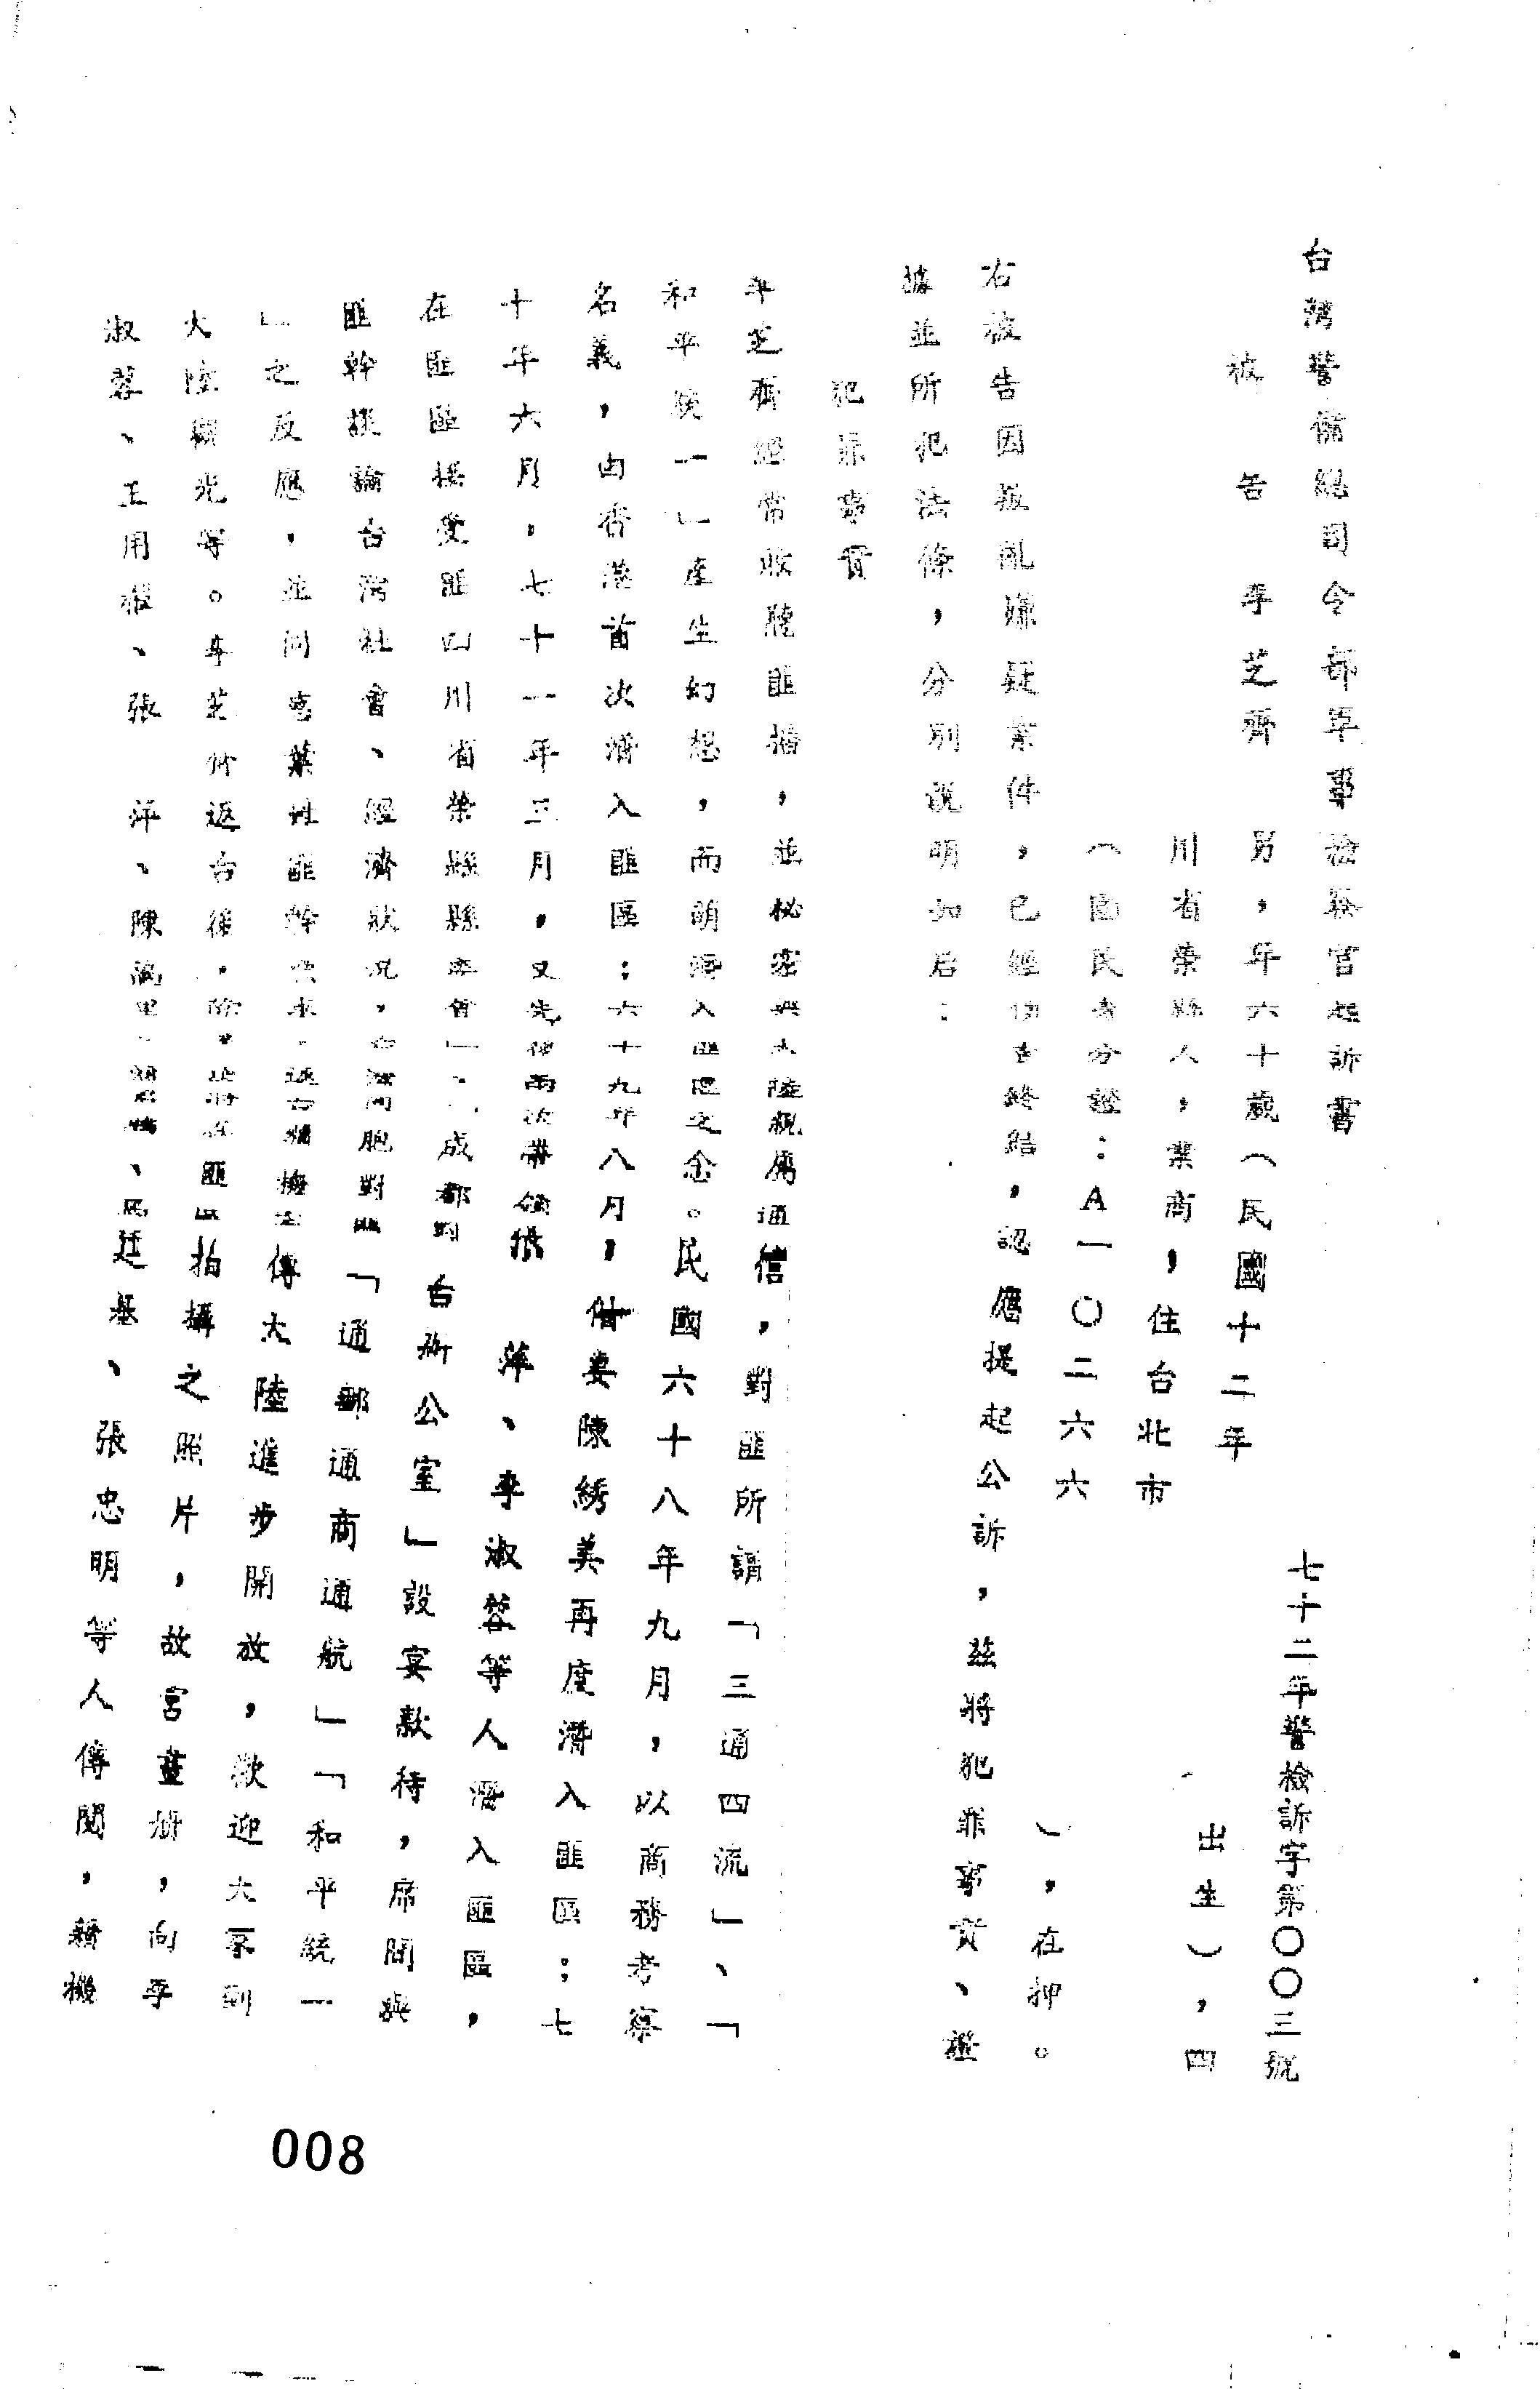 台灣警備總司令部軍事檢察官起訴書
七十二年警檢訴字第〇〇三號
被告 李芝齊 男，年六十歲（民國十二年 出生），四
川省榮縣人，業商，住台北市
（國民身分證：A一〇二六六 ），在押。
右被告因叛亂嫌疑案件，已經偵查終結，認應提起公訴，茲將犯罪事實、證
據並所犯法條，分別說明如后：
犯罪事實
李芝齊經常收聽匪播，並秘密與大陸親屬通信，對匪所謂「三通四流」、「
和平統一」產生幻想，而萌潛入匪區之念。民國六十八年九月，以商務考察
名義，由香港首次潛入匪區；六十九年八月，偕妻陳綉美再度潛入匪區；七
十年六月，七十一年三月，又先後兩次帶領張 萍、李淑蓉等人潛入匪區，
在匪區接受匪四川省榮縣縣 會」、「成都對台辦公室」設宴款待，席間與
匪幹談論台灣社會、經濟狀況，台灣同胞對匪「通郵通商通航」「和平統一
」之反應，並同意葉姓匪幹 求，返台 傳大陸進步開放，歡迎大家到
大陸觀光等。李芝齊返台後，除 將在匪區拍攝之照片，故宮畫冊，向李
淑蓉、王用 、張 萍、陳 、 、 廷 、張忠明等人傳閱，藉機
008